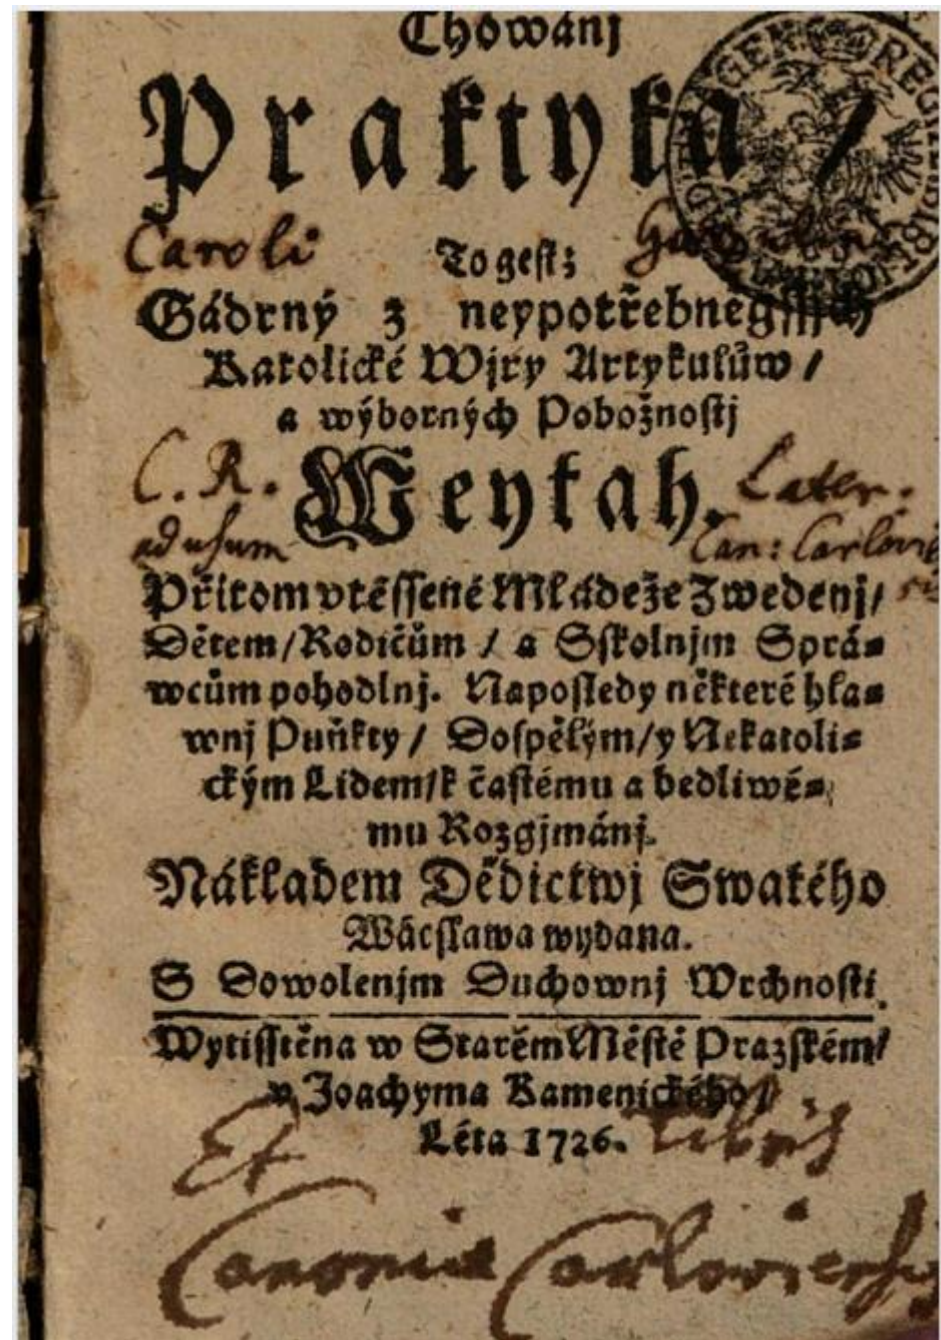 Chowánj
Praktyka /
Caroli
To gest:
Gádrný z neypotřebnegssjch
Katolické Wjry Artykulůw /
a wýborných Pobožnostj
C. R.
Weytah.
Later.
ad usum
Can: Carlovi
Přitom vtěssené Mládeže Zwedenj /
Dětem / Rodičům / a Sskolnjm Sprá=
wcům pohodlnj. Naposledy některé hla=
wnj Puňkty / Dospělým / y Nekatoli=
ckým Lidem / k častému a bedliwé=
mu Rozgjmánj.
Nákladem Dědictwj Swatého
Wácslawa wydana.
S Dowolenjm Duchownj Wrchnosti.
Wytisstěna w Starém Městě Pražském /
v Joachyma Kamenického /
Léta 1726.
Ex libris
Canoniæ Carlovienfis